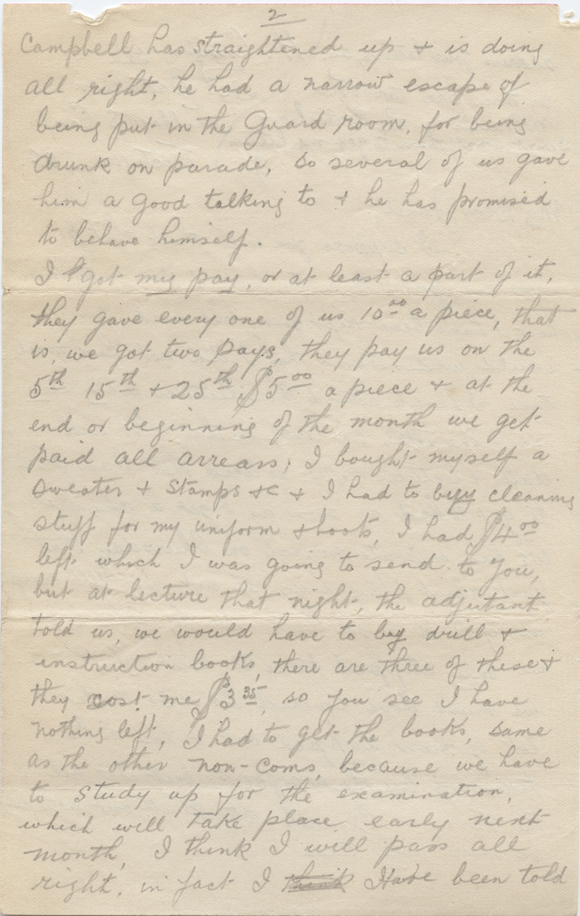 2
Campbell has straightened up & is doing
all right, he had a narrow escape of
being put in the Guard room, for being
drunk on parade, so several of us gave
him a good talking to & he has promised
to behave himself.
I got my pay, or at least a part of it,
they gave every one of us 10.00 a piece, that
is, we got two pays, they pay us on the
5th 15th & 25th $5.00 a piece & at the
end or beginning of the month we get
paid all arrears; I bought myself a
sweater & stamps &c & I had to buy cleaning
stuff for my uniform & boots, I had $4.00
left which I was going to send to you,
but at lecture that night, the adjutant
told us, we would have to buy drill &
instruction books, there are three of these &
they cost me $3.35, so you see I have
nothing left, I had to get the books, same
as the other non-coms, because we have
to study up for the examination,
which will take place early next
month, I think I will pass all
right, in fact I think Have been told